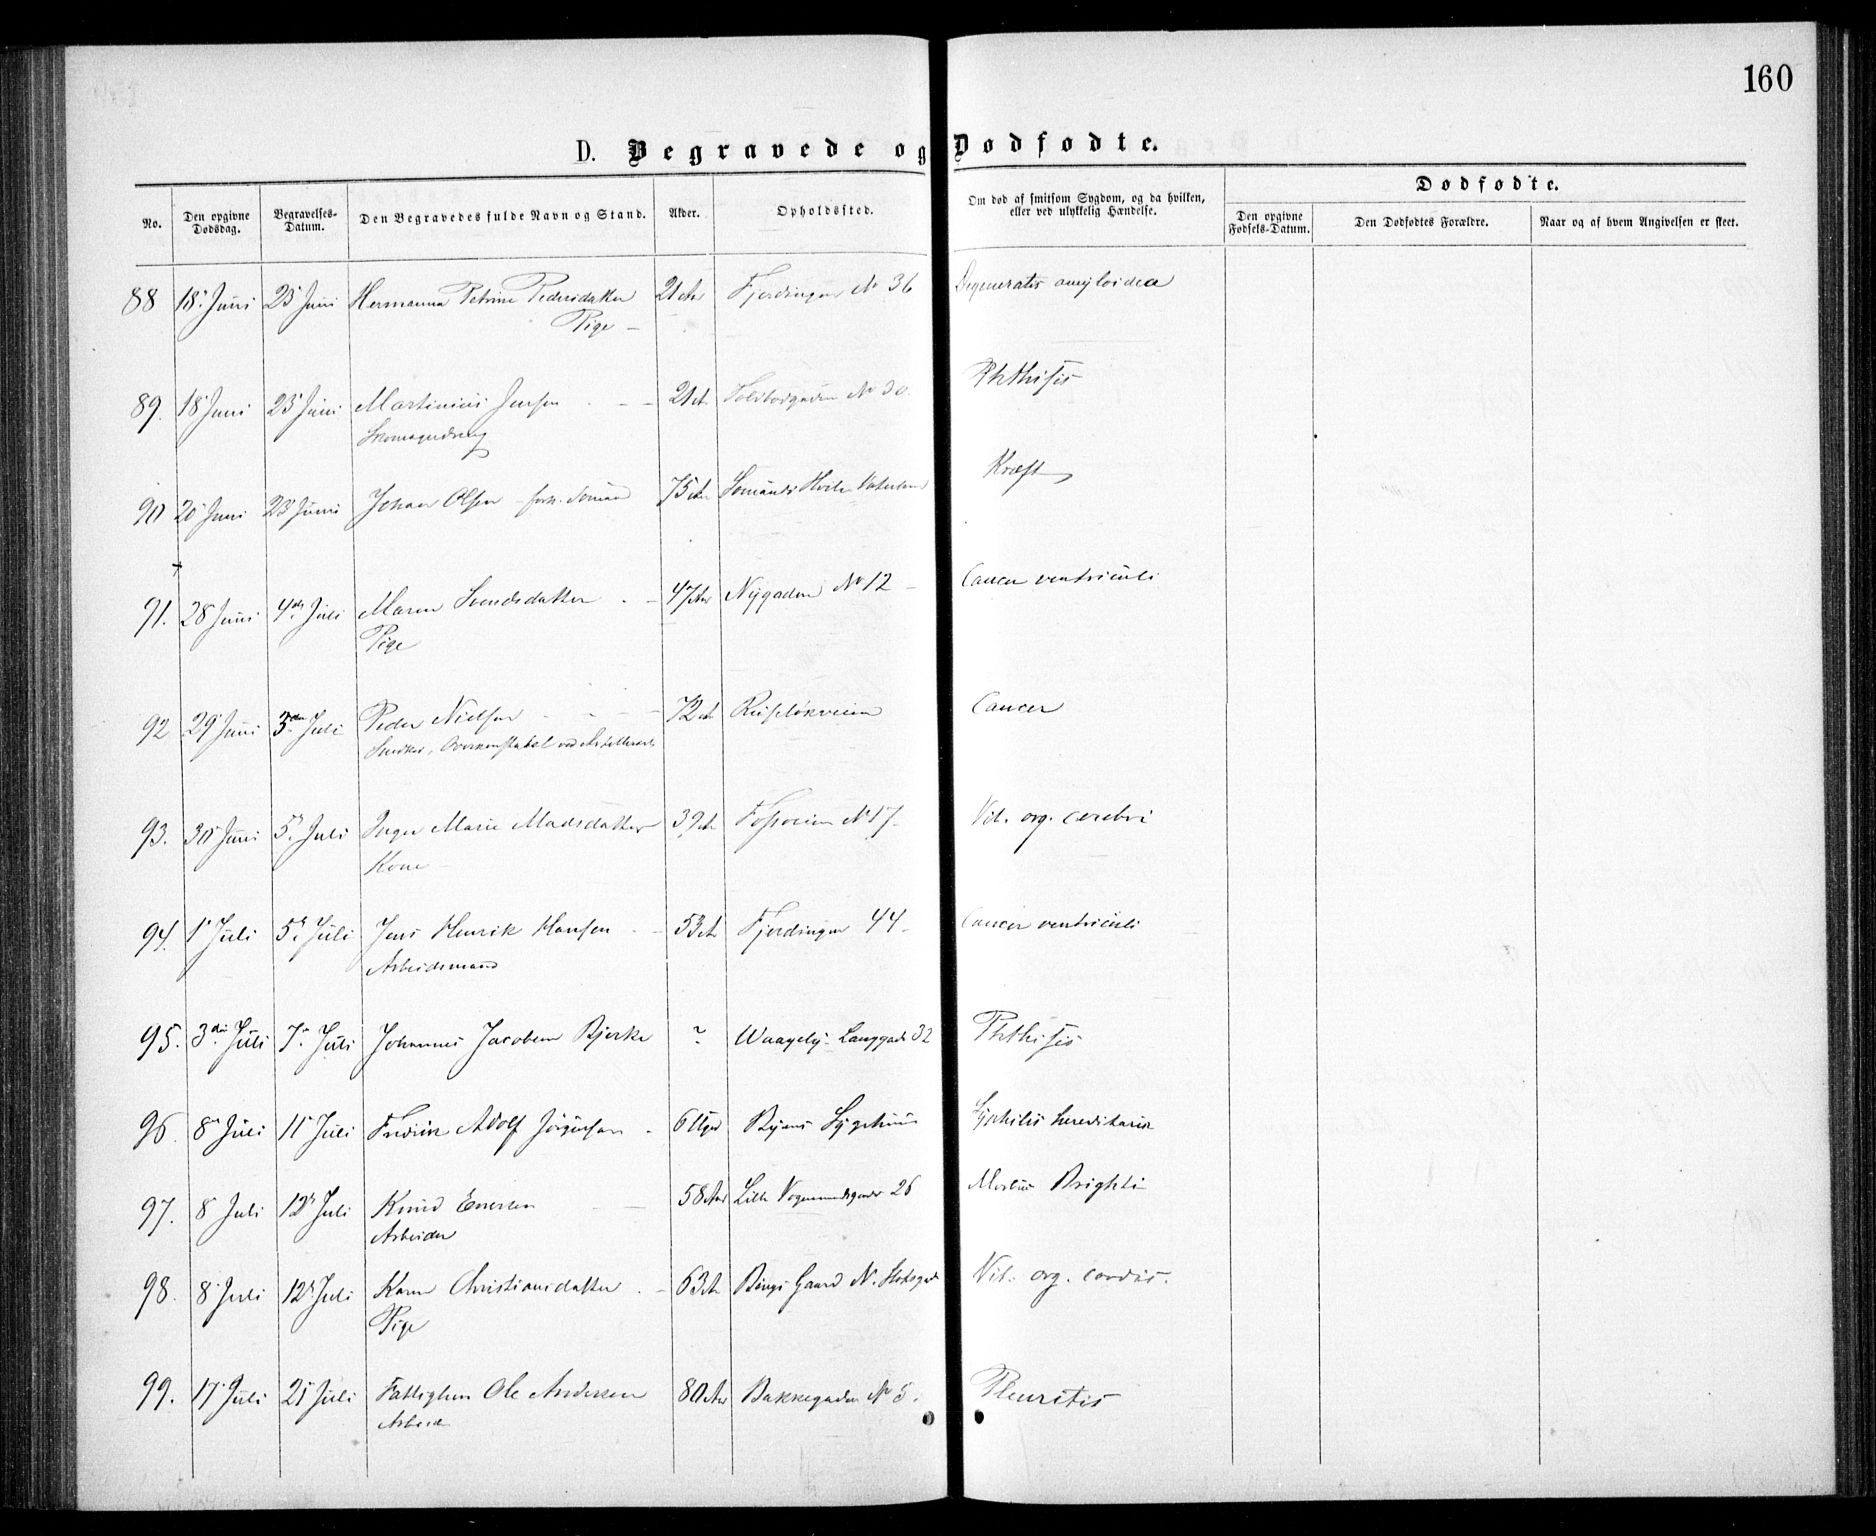 160
D. Begravede og Dødfødte.
No. Den opgivne Dødsdag. Begravelses-Datum. Den Begravedes fulde Navn og Stand. Alder. Opholdssted. Om død af smitsom Sygdom, og da hvilken, eller ved ulykkelig Hændelse. Dødfødte.
Den opgivne Fødsels-Datum. Den Dødfødtes Forældre. Naar og af hvem Angivelsen er skeet.
88 18 Juni 23 Juni Hermanna Petrine Pedersdatter 21 Aar Fjerdingen No 36 Degeneratio amyloidea
Pige
89. 18 Juni 23 Juni Martinius Jensen 21 A. Toldbodgaden No 30 Phthisis
Skomagerdreng
90 20 Juni 23 Juni Johan Olsen forh. Sømand 75 Aar Kræft
91. 28 Juni 4de Juli Maren Svendsdatter 47 Aar Nygaden No 12 Cancer ventriculi
Pige
92 29 Juni 3die Juli Peder Nielsen 72 A. Ruseløkveien Cancer
Snedker, Overkonstabel ved
93. 30 Juni 5. Juli Inger Marie Madsdatter 39 A. Fossveien No 17 Vit. org. cerebri
Kone
94. 1 Juli 5. Juli Jens Henrik Hansen 53 A. Fjerdingen 44 Cancer ventriculi
Arbeidsmand
95. 3die Juli 7. Juli Johannes Jacobsen Bjerke ? Waageby Langgade 32 Phthisis
96. 8 Juli 11 Juli Fredrik Adolf Jørgensen 6 Uger Byens Sygehuus Syphilis hereditaria
97. 8 Juli 12 Juli Knud Enersen 58 Aar Lille Vognmandsgade 26 Morbus Brightii
Arbeider
98. 8 Juli 12 Juli Karen Christiansdatter 63 A. Bings Gaard N. Slotsgade Vit. org. cordis.
Pige
99. 17 Juli 21 Juli Fattiglem Ole Andersen 80 Aar Bakkegaden No 5. Pleuritis
Arbeid